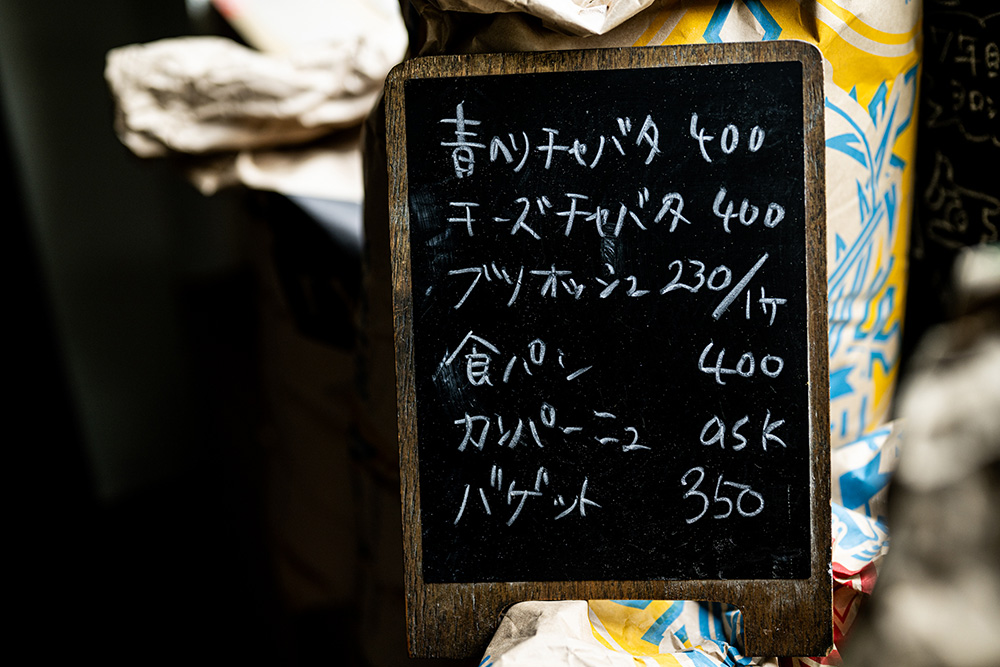 青のりチャバタ 400
チーズチャバタ 400
ブリオッシュ 230/1ケ
食パン 400
カンパーニュ ask
バゲット 350